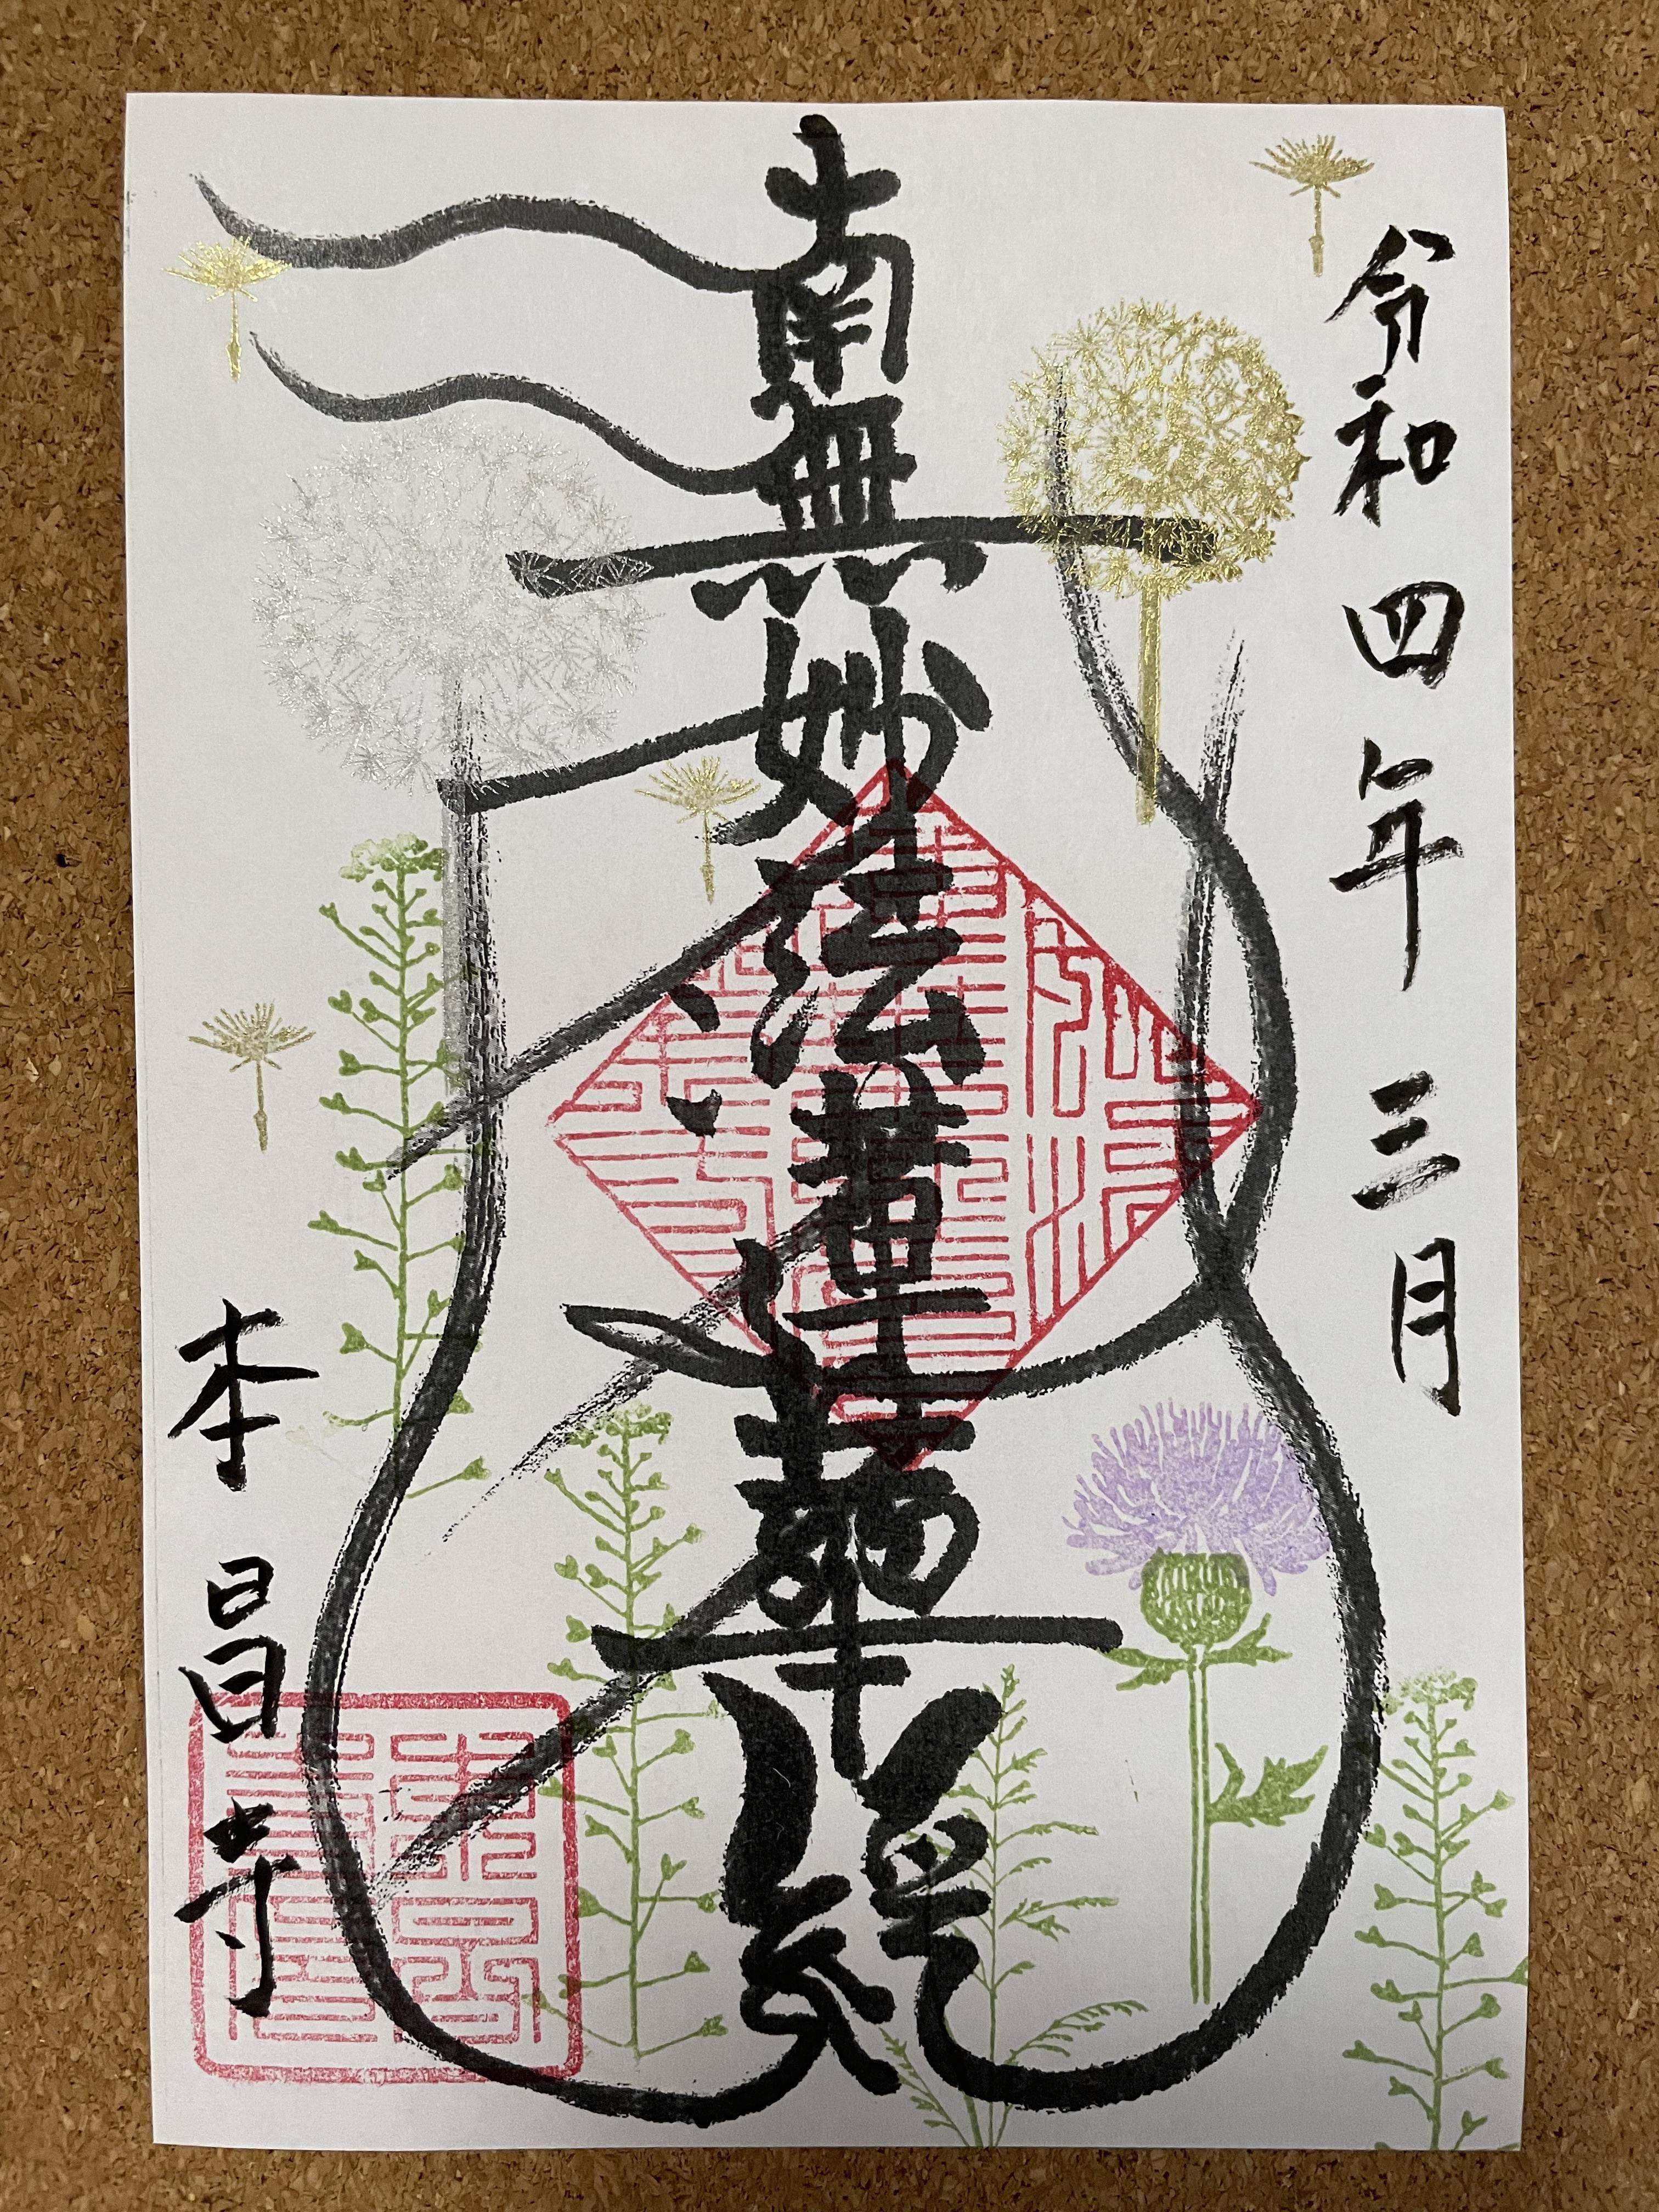 令和四年三月
南無妙法蓮華経
本昌寺